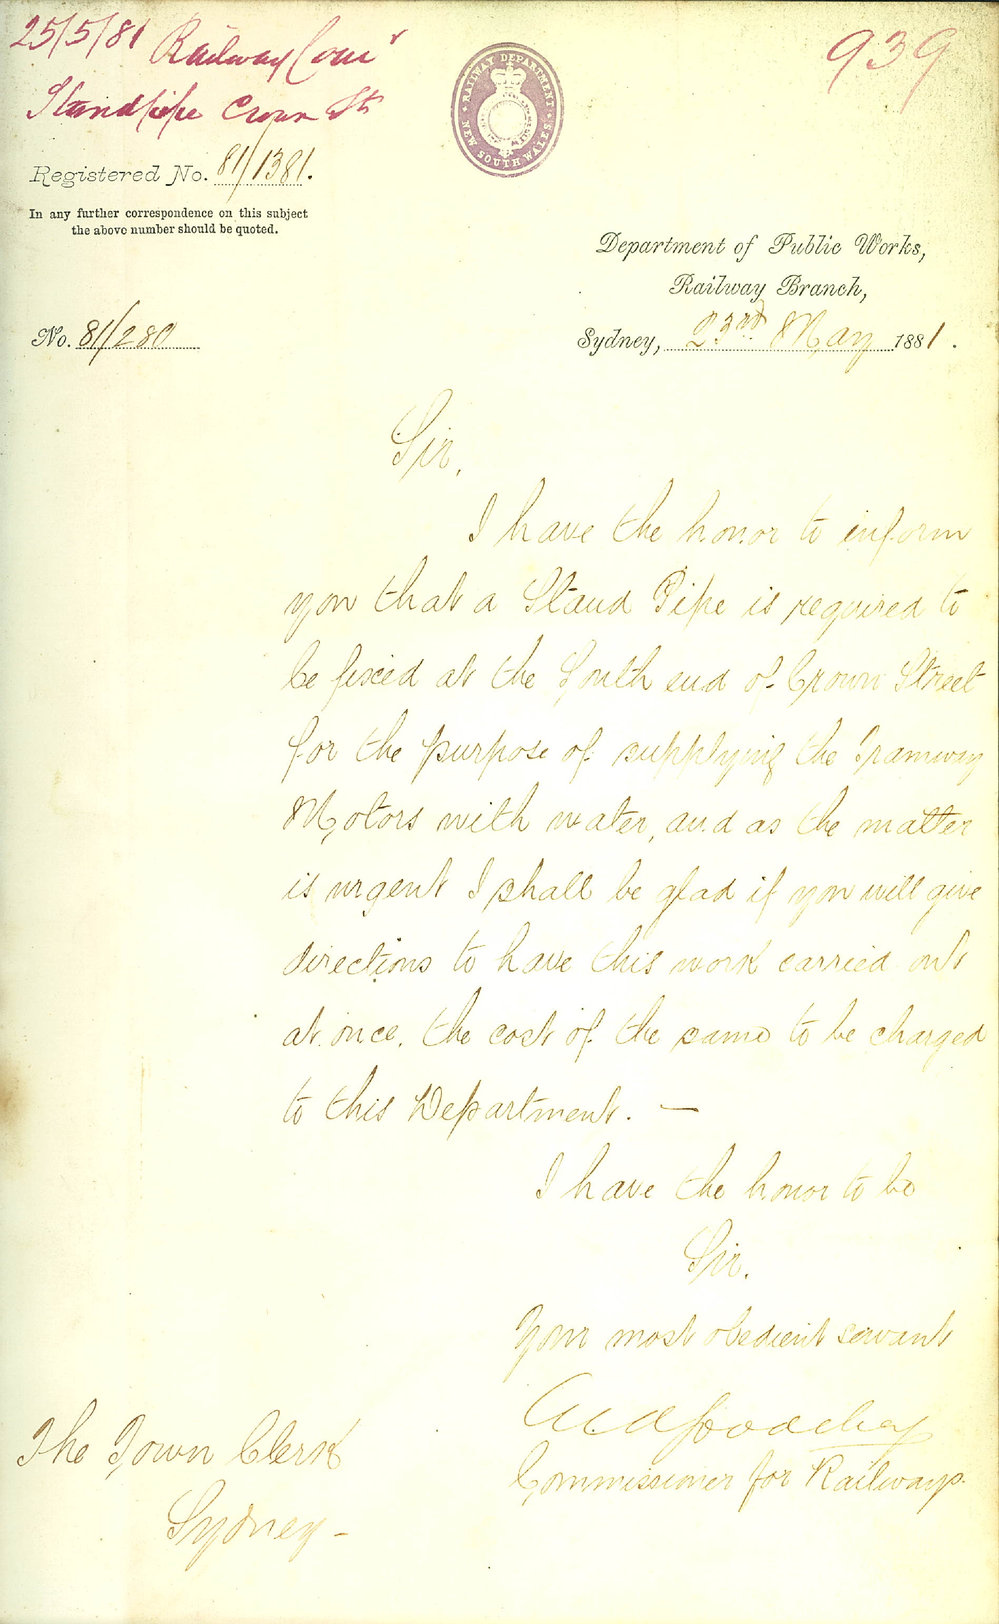 25/5/81 Railway Comr
Standpipe Crown St
939
RAILWAY DEPARTMENT
NEW SOUTH WALES
Registered No. 81/1381.
In any further correspondence on this subject
the above number should be quoted.
Department of Public Works,
Railway Branch,
No. 81/280
Sydney, 23rd May 1881.
Sir,
I have the honor to inform
you that a Stand Pipe is required to
be fixed at the South end of Crown Street
for the purpose of supplying the Tramway
Motors with water, and as the matter
is urgent I shall be glad if you will give
directions to have this work carried out
at once, the cost of the same to be charged
to this Department. —
I have the honor to be
Sir,
Your most obedient servant
Goodchap
Commissioner for Railways.
The Town Clerk
Sydney -